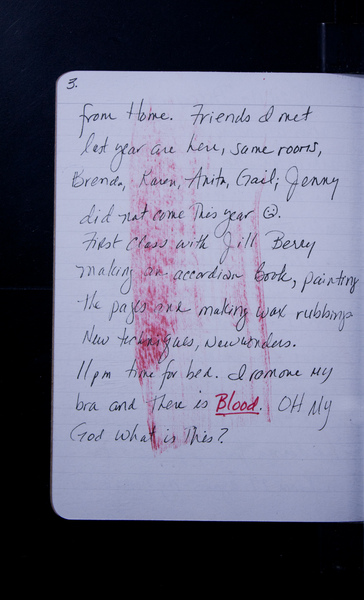 3.
from Home. Friends I met
last year are here, same rooms,
Brenda, Karen, Anita, Gail; Jenny
did not come This year ☹.
First class with Jill Berry
making an accordian book, painting
the pages and making wax rubbings
New techniques, new wonders.
11 pm time for bed. I remove My
bra and There is Blood. OH My
God what is This?